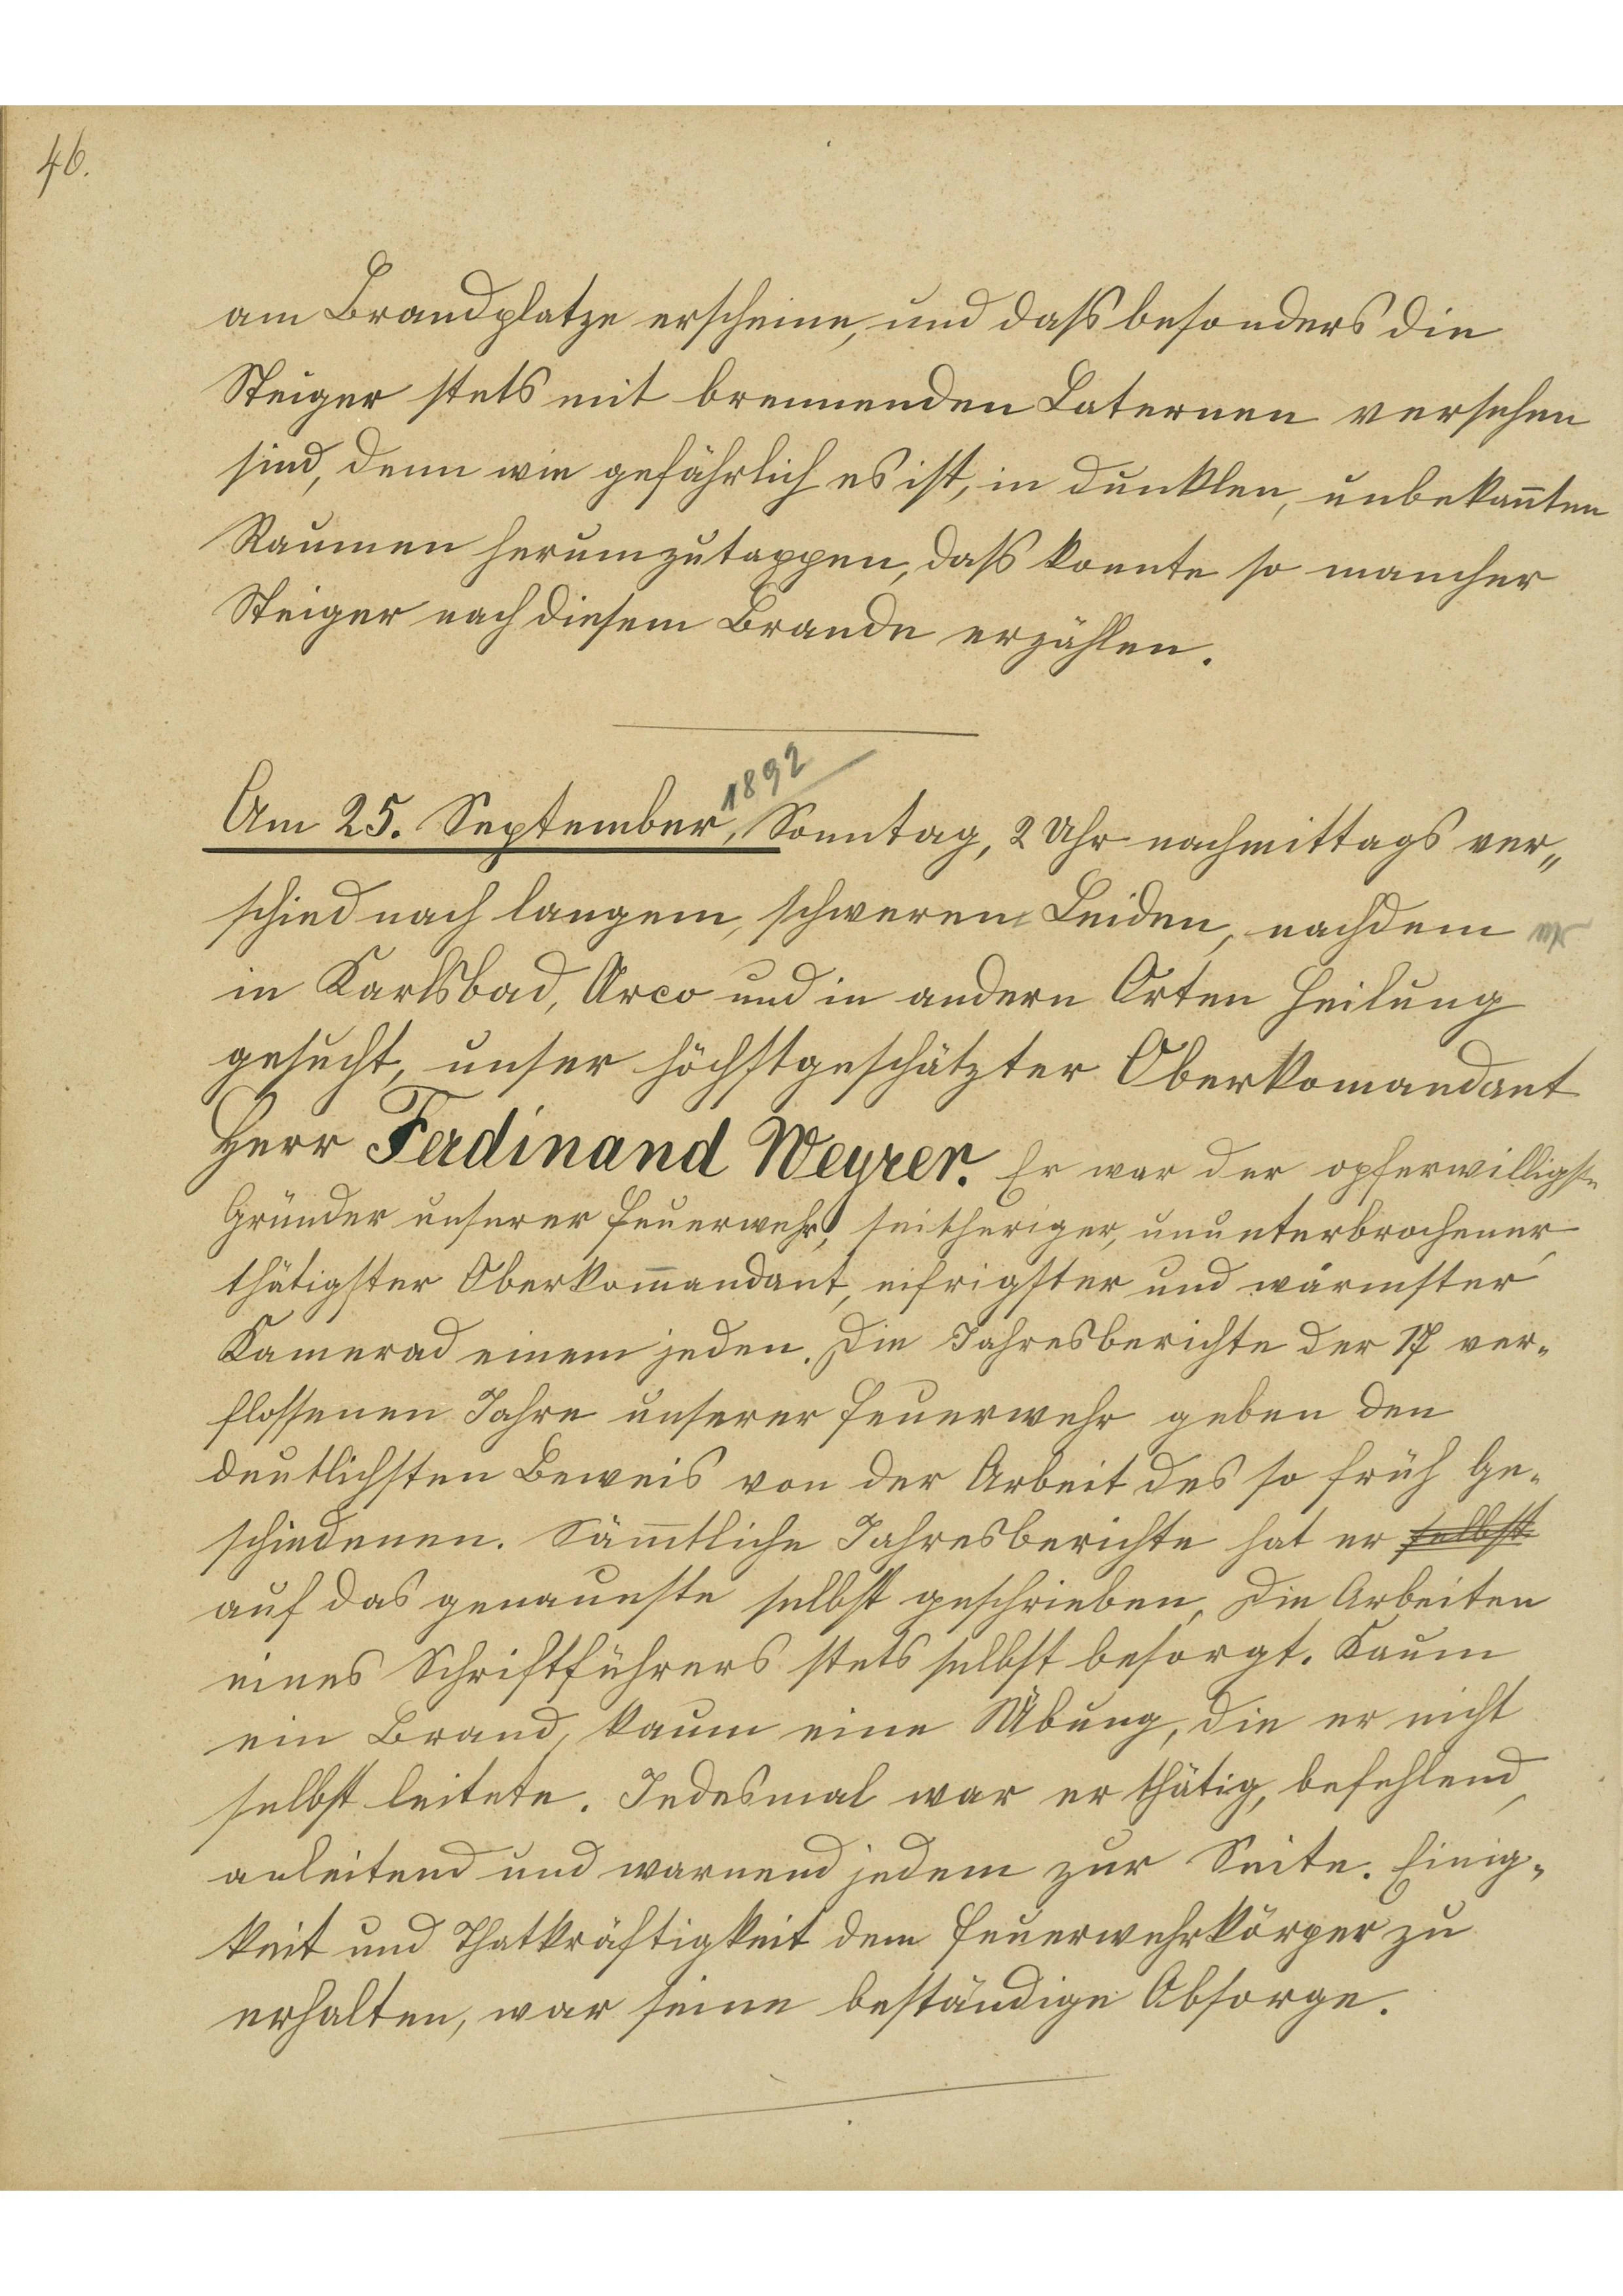 46.
am Brandplatze erscheine, und daß besonders die
Steiger stets mit brennenden Laternen versehen
sind, denn wie gefährlich es ist, in dunklen, unbekañten
Raumen herumzutappen, daß konnte so mancher
Steiger nach diesem Brande erzählen.
1892
Am 25. September, Sonntag, 2 Uhr nachmittags ver„
schied nach langem, schweren Leiden, nachdem er
in Karlsbad, Arco und in andern Orten Heilung
gesucht, unser höchstgeschätzter Oberkomandant
Herr Ferdinand Weyrer. Er war der opferwilligste
Gründer unserer Feuerwehr, seitheriger, ununterbrochener,
thätigster Oberkom̄andant, eifrigster und wärmster
Kamerad einem jeden. Die Jahresberichte der 17 ver-
flossenen Jahre unserer Feuerwehr geben den
deutlichsten Beweis von der Arbeit des so früh Ge-
schiedenen. Säm̄tliche Jahresberichte hat er selbst
auf das genaueste selbst geschrieben, Die Arbeiten
eines Schriftführers stets selbst besorgt. Kaum
ein Brand, kaum eine Übung, die er nicht
selbst leitete. Jedesmal war er thätig, befehlend,
anleitend und warnend jedem zur Seite. Einig-
keit und Thatkräftigkeit dem Feuerwehrkörper zu
erhalten, war seine beständige Absorge.